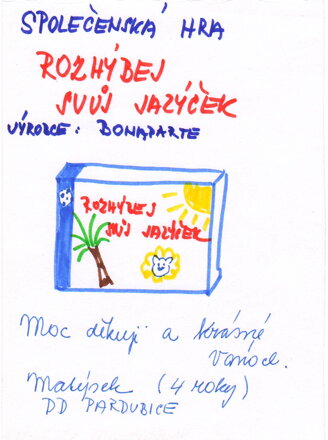 SPOLEČENSKÁ HRA
ROZHÝBEJ
SVŮJ JAZÝČEK
VÝROBCE: BONAPARTE
ROZHÝBEJ
SVŮJ JAZÝČEK
Moc děkuji a krásné
Vánoce.
Matýsek (4 roky)
DD PARDUBICE